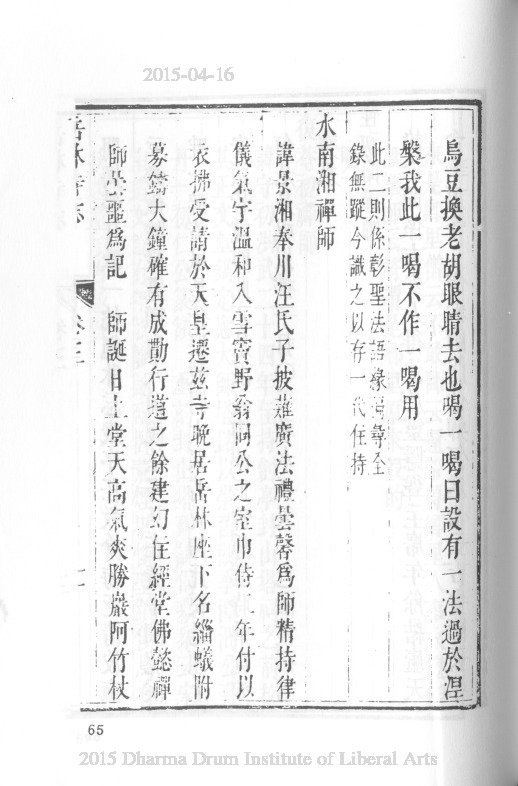 2015-04-16
烏豆換老胡眼睛去也喝一喝曰設有一法過於涅
槃我此一喝不作一喝用
此二則係彰聖法語緣 尋全
錄無蹤今識之以存一代住持
水南湘禪師
諱景湘奉川汪氏子披薙廣法禮曇馨為師精持律
儀氣宇溫和入雪竇野翁同公之室巾侍二年付以
衣拂受請於天皇遷茲寺晚居岳林座下名緇蟻附
募鑄大鐘確有成勳行道之餘建幻住經堂佛懿禪
師曇噩為記 師誕日上堂天高氣爽勝巖阿竹杖
岳林寺志 卷三
65
2015 Dharma Drum Institute of Liberal Arts